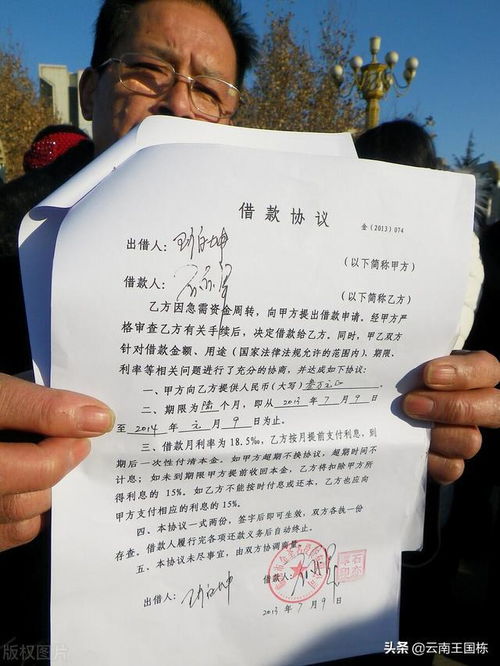 借款协议
金(2013)074
出借人：
（以下简称甲方）
借款人：
（以下简称乙方）
乙方因急需资金周转，向甲方提出借款申请。经甲方严
格审查乙方有关手续后，决定借款给乙方。同时，甲乙双方
针对借款金额、用途（国家法律法规允许的范围内）、期限、
利率等相关问题进行了充分的协商，并达成如下协议：
一、甲方向乙方提供人民币（大写）叁万元。
二、期限为陆个月，即从2013年7月9日
至2014年元月9日为止。
三、借款月利率为18.5‰，乙方按月提前支付利息，到
期后一次性付清本金。如甲方超期不换协议，超期时间不
计息；如未到期限甲方提前收回本金，乙方将扣除甲方所
得利息的 15%。如乙方不能按时付息或还本，乙方也应向
甲方支付相应的利息的15%。
四、本协议一式两份，签字后即可生效，双方各执一份
存查。借款人履行完各项还款义务后自动终止。
五、本协议未尽事宜，由双方协调商量。
出借人：
借款人：
2013年7月9日
版权图片
头条 @云南王国栋